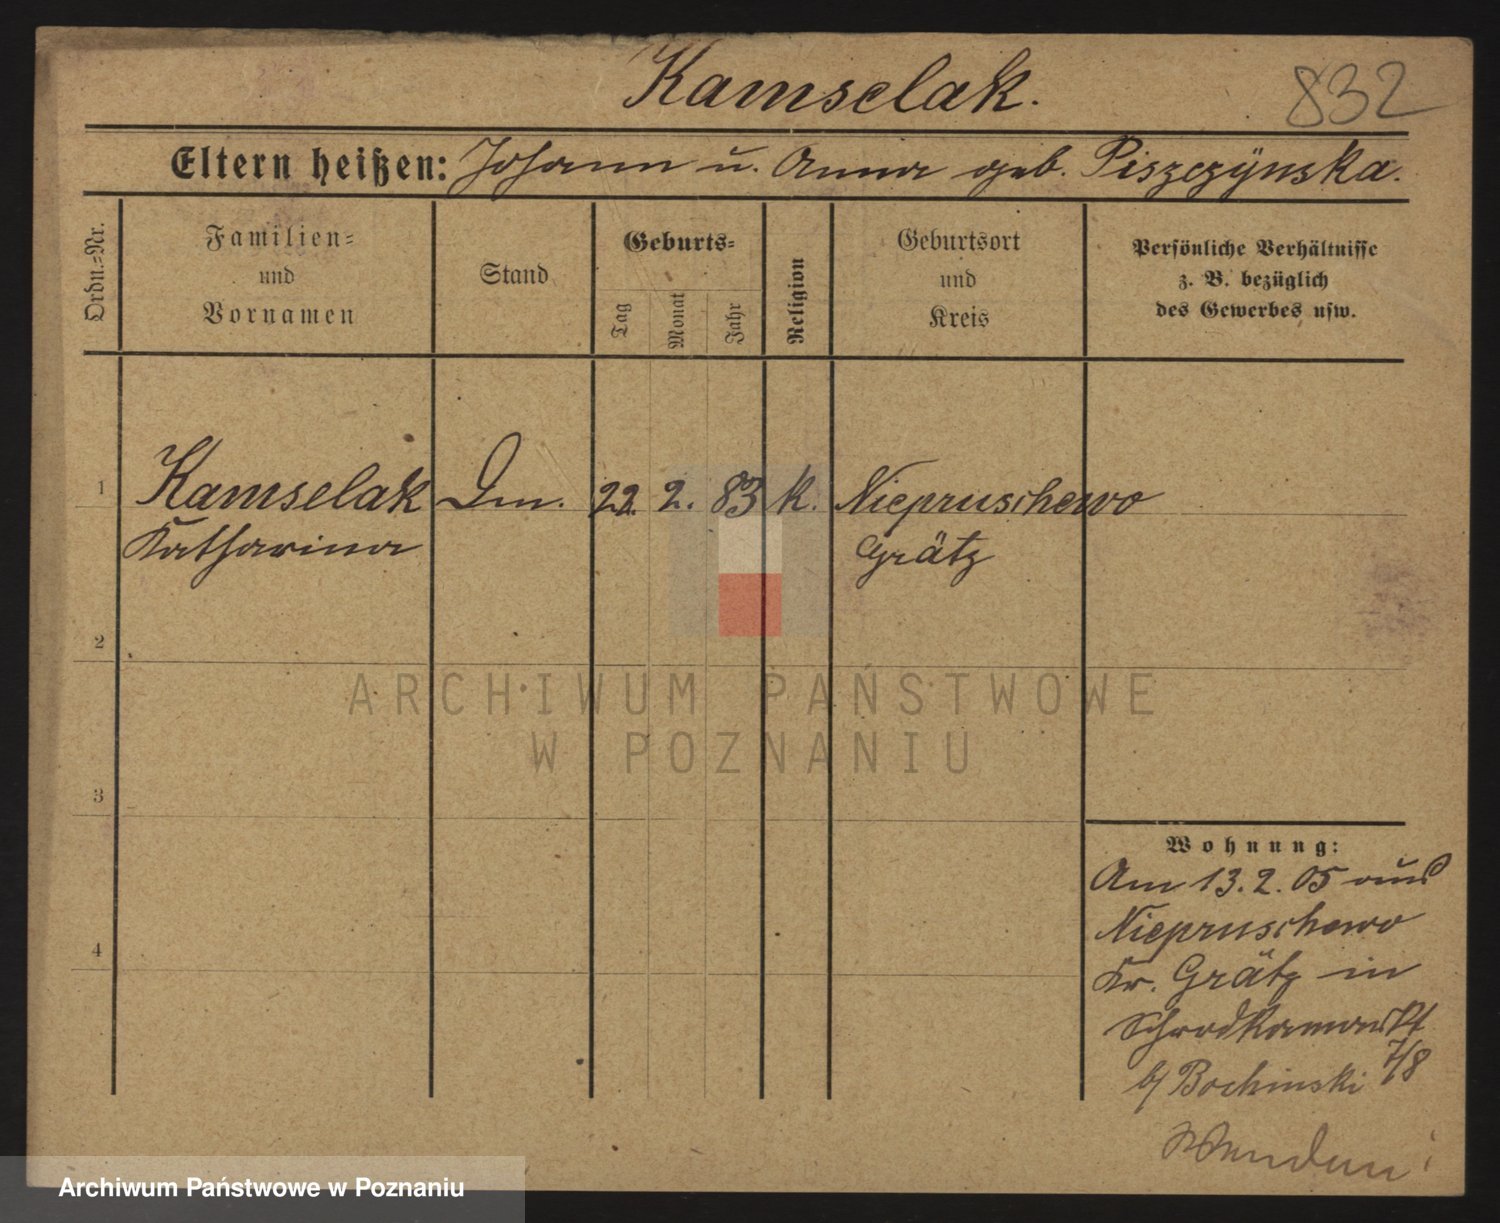 Kamselak.
832
Eltern heißen: Johann u. Anna geb. Piszczynska.
Ordn.-Nr.
Familien-
und
Vornamen
Stand
Geburts-
Tag
Monat
Jahr
Religion
Geburtsort
und
Kreis
Persönliche Verhältnisse
z. B. bezüglich
des Gewerbes usw.
1
Kamselak
Katharina
Dm.
22. 2. 83
k.
Niepruschewo
Grätz
2
3
4
Wohnung:
Am 13.2.05 aus
Niepruschewo
Kr. Grätz in
7/8
b/ Bochinski
Wenden!
ARCHIWUM PAŃSTWOWE
W POZNANIU
Archiwum Państwowe w Poznaniu